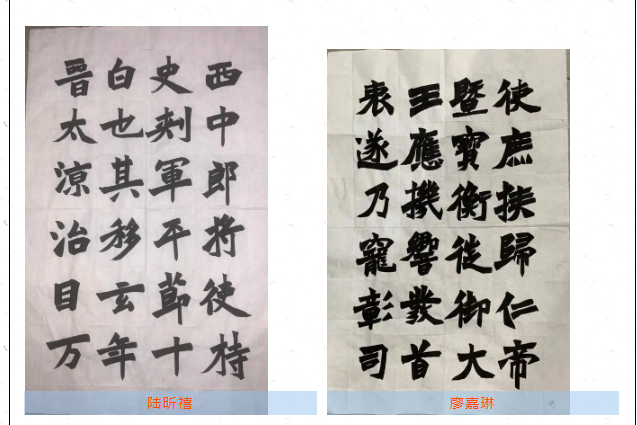 西中郎將使持
史刺軍平節十
白也其移玄年
晉太涼治目万
使庶歸仁帝
暨寶衡御大
王應機響發首
表遂乃寵彰司
陆昕禧
廖嘉琳